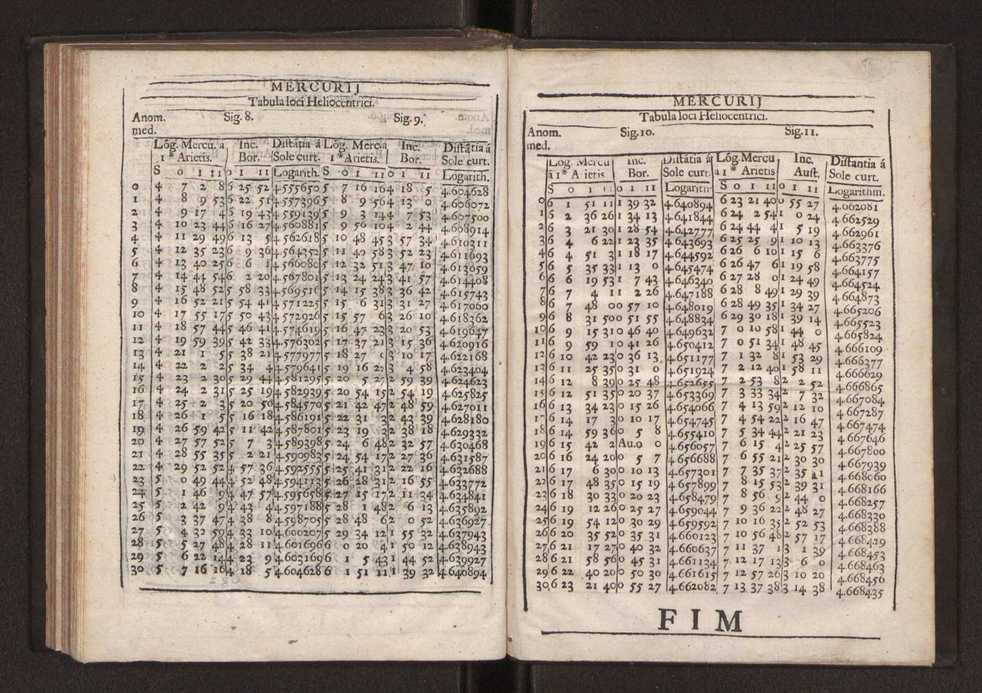 MERCURIJ
Tabula loci Heliocentrici.
Anom. Sig. 8. Sig. 9.
med.
Lõg. Mercu. a Inc. Distãtia á Lõg. Mercu Inc. Distãtia á
1* Arietis. Bor. Sole curt. 1* Arietis. Bor. Sole curt.
S 0 1 11 0 1 11 Logarith. S 0 1 11 0 1 11 Logarith.
0 4 7 2 8 6 25 52 4.555650 5 7 16 16 4 18 5 4.604628
1 4 8 9 53 6 22 51 4.557396 5 8 9 56 4 13 0 4.606072
2 4 9 17 4 5 19 43 4.559139 5 9 3 14 4 7 53 4.607500
3 4 10 23 44 6 16 27 4.560881 5 9 56 10 4 2 44 4.608914
4 4 11 29 49 6 13 5 4.562618 5 10 48 45 3 57 34 4.610311
5 4 12 35 23 6 9 36 4.564352 5 11 40 58 3 52 23 4.611693
6 4 13 40 25 6 6 1 4.566080 5 12 32 51 3 47 10 4.613059
7 4 14 44 54 6 2 20 4.567801 5 13 24 24 3 41 57 4.614408
8 4 15 48 52 5 58 33 4.569516 5 14 15 38 3 36 42 4.615743
9 4 16 52 21 5 54 41 4.571225 5 15 6 31 3 31 27 4.617060
10 4 17 55 17 5 50 43 4.572926 5 15 57 6 3 26 10 4.618362
11 4 18 57 44 5 46 41 4.574619 5 16 47 22 3 20 53 4.619647
12 4 19 59 39 5 42 33 4.576302 5 17 37 21 3 15 36 4.620916
13 4 21 1 5 5 38 21 4.577977 5 18 27 3 10 17 4.622168
14 4 22 2 2 5 34 4 4.579641 5 19 16 3 4 58 4.623404
15 4 23 2 30 5 29 44 4.581295 5 20 5 27 2 59 39 4.624623
16 4 24 2 31 5 25 19 4.582939 5 20 54 15 2 54 19 4.625825
17 4 25 2 3 5 20 50 4.584570 5 21 42 47 2 48 59 4.627011
18 4 26 1 5 5 16 18 4.586191 5 22 31 2 43 39 4.628180
19 4 26 59 42 5 11 42 4.587801 5 23 19 2 38 18 4.629332
20 4 27 57 52 5 7 3 4.589398 5 24 6 48 2 32 57 4.630468
21 4 28 55 35 5 2 21 4.590983 5 24 54 17 2 27 36 4.631587
22 4 29 52 52 4 57 36 4.592555 5 25 41 31 2 22 16 4.632688
23 5 0 49 44 4 52 48 4.594113 5 26 28 31 2 16 55 4.633772
24 5 1 46 9 4 47 57 4.595658 5 27 15 17 2 11 34 4.634841
25 5 2 42 9 4 43 4 4.597188 5 28 1 48 2 6 13 4.635892
26 5 3 37 47 4 38 8 4.598705 5 28 48 6 2 0 52 4.636927
27 5 4 32 59 4 33 10 4.600207 5 29 34 12 1 55 32 4.637943
28 5 5 27 48 4 28 11 4.601696 6 0 20 4 1 50 12 4.638943
29 5 6 22 14 4 23 9 4.603169 6 1 5 43 1 44 52 4.639927
30 5 7 16 16 4 18 5 4.604628 6 1 51 11 1 39 32 4.640894
MERCURIJ
Tabula loci Heliocentrici.
Anom. Sig. 10. Sig. 11.
med.
Log. Mercu Inc. Distãtia á Lõg. Mercu Inc. Distantia á
á 1* Arietis Bor. Sole curt á 1* Arietis Aust. Sole curt.
S 0 1 11 0 1 11 Logarith S 0 1 11 0 1 11 Logarithm.
0 6 1 51 11 1 39 32 4.640894 6 23 21 40 0 55 27 4.662081
1 6 2 36 26 1 34 13 4.641844 6 24 2 54 1 0 24 4.662529
2 6 3 21 30 1 28 54 4.642777 6 24 44 4 1 5 19 4.662961
3 6 4 6 22 1 23 35 4.643693 6 25 25 9 1 10 13 4.663376
4 6 4 51 3 1 18 17 4.644592 6 26 6 10 1 15 6 4.663775
5 6 5 35 33 1 13 0 4.645474 6 26 47 6 1 19 58 4.664157
6 6 6 19 53 1 7 43 4.646340 6 27 28 0 1 24 49 4.664524
7 6 7 4 11 1 2 26 4.647188 6 28 8 49 1 29 39 4.664873
8 6 7 48 0 0 57 10 4.648019 6 28 49 35 1 34 27 4.665206
9 6 8 31 50 0 51 55 4.648834 6 29 30 18 1 39 14 4.665523
10 6 9 15 31 0 46 40 4.649632 7 0 10 58 1 44 0 4.665824
11 6 9 59 1 0 41 26 4.650412 7 0 51 34 1 48 45 4.666109
12 6 10 42 23 0 36 13 4.651177 7 1 32 8 1 53 29 4.666377
13 6 11 25 35 0 31 0 4.651924 7 2 12 40 1 58 11 4.666629
14 6 12 8 39 0 25 48 4.652655 7 2 53 8 2 2 52 4.666865
15 6 12 51 35 0 20 37 4.653369 7 3 33 34 2 7 32 4.667084
16 6 13 34 23 0 15 26 4.654066 7 4 13 59 2 12 10 4.667287
17 6 14 17 3 0 10 17 4.654745 7 4 54 22 2 16 47 4.667474
18 6 14 59 36 0 5 8 4.655410 7 5 34 44 2 21 23 4.667646
19 6 15 42 2 Au.0 0 4.656057 7 6 15 4 2 25 57 4.667800
20 6 16 24 20 0 5 7 4.656688 7 6 55 21 2 30 30 4.667939
21 6 17 6 30 0 10 13 4.657301 7 7 35 37 2 35 11 4.668060
22 6 17 48 35 0 15 19 4.657899 7 8 15 53 2 39 31 4.668166
23 6 18 30 33 0 20 23 4.658479 7 8 56 9 2 44 0 4.668257
24 6 19 12 26 0 25 27 4.659044 7 9 36 22 2 48 27 4.668330
25 6 19 54 12 0 30 29 4.659592 7 10 16 35 2 52 53 4.668388
26 6 20 35 52 0 35 31 4.660123 7 10 56 48 2 57 17 4.668429
27 6 21 17 27 0 40 32 4.660637 7 11 37 1 3 1 39 4.668453
28 6 21 58 56 0 45 31 4.661134 7 12 17 13 3 6 0 4.668463
29 6 22 40 20 0 50 30 4.661615 7 12 57 26 3 10 20 4.668456
30 6 23 21 40 0 55 27 4.662082 7 13 37 38 3 14 38 4.668435
FIM